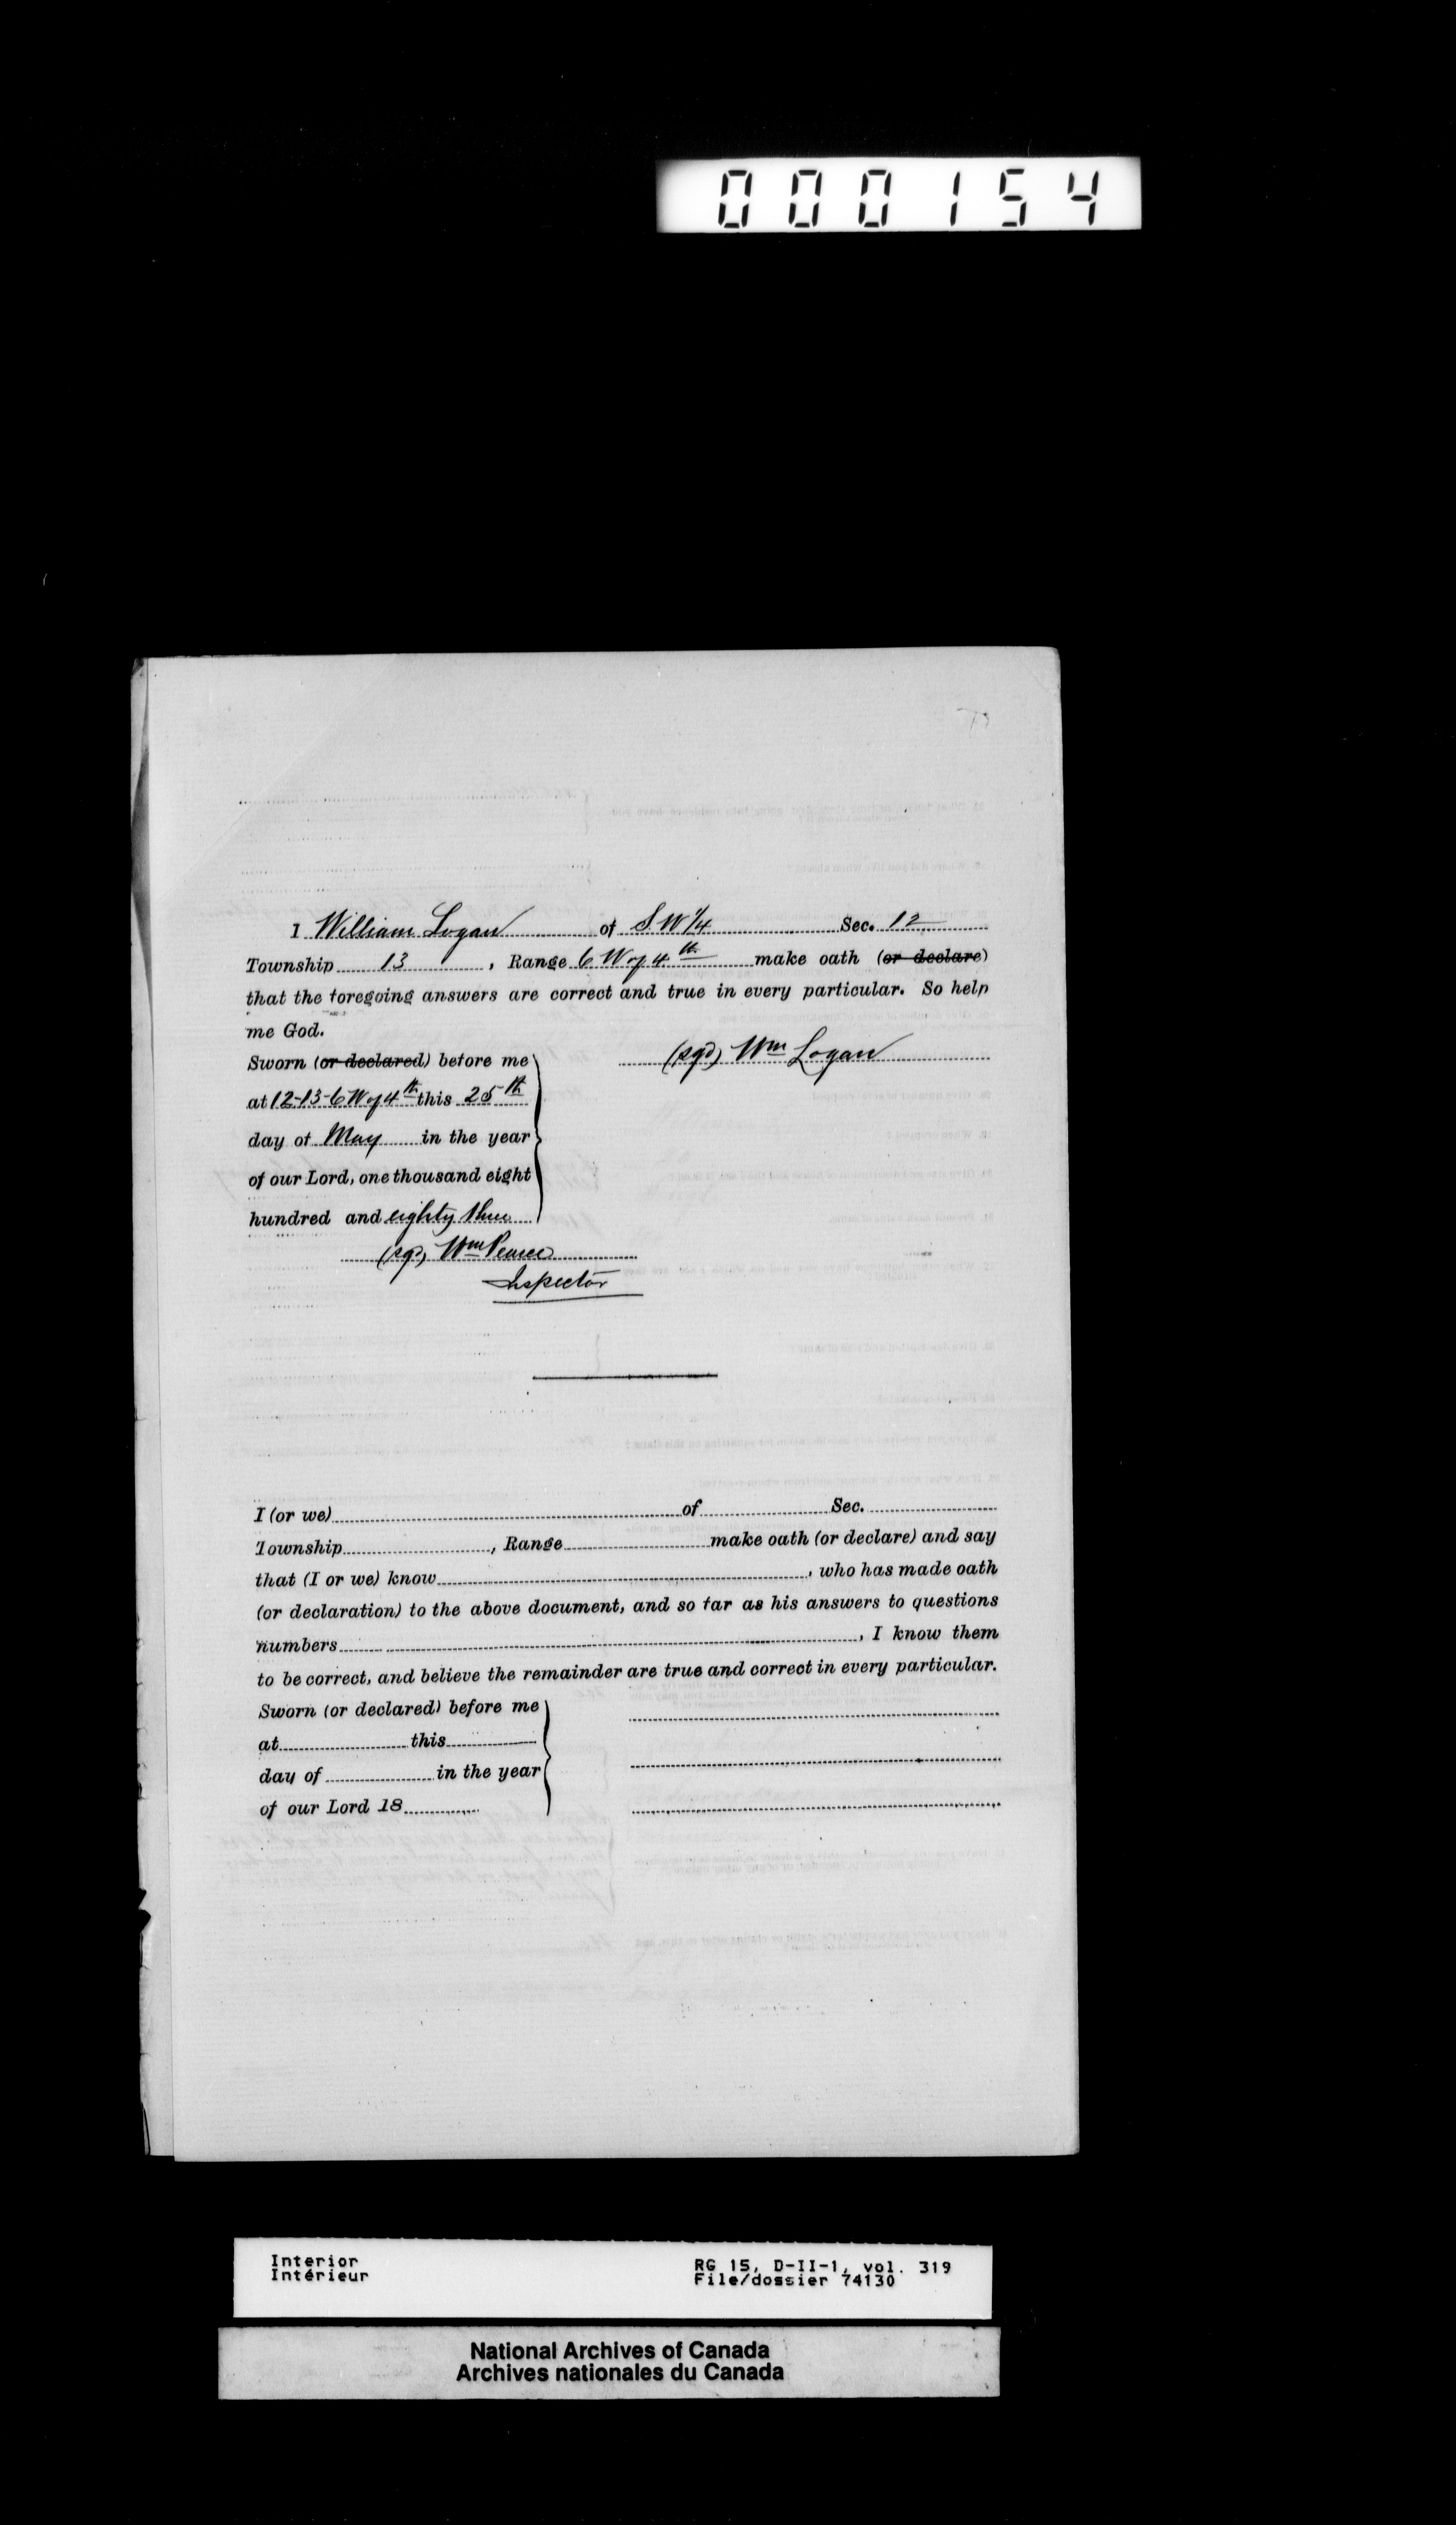 000154
I William Logan of S.W 1/4 Sec. 12
Township 13, Range 6 W of 4th make oath (or declare)
that the foregoing answers are correct and true in every particular. So help
me God.
Sworn (or declared) before me
(sgd) Wm Logan
at 12-13-6 W of 4th this 25th
day of May in the year
of our Lord, one thousand eight
hundred and eighty three
(sgd) Wm Pearce
Inspector
I (or we) of Sec.
Township, Range make oath (or declare) and say
that (I or we) know, who has made oath
(or declaration) to the above document, and so far as his answers to questions
numbers, I know them
to be correct, and believe the remainder are true and correct in every particular.
Sworn (or declared) before me
at this
day of in the year
of our Lord 18
Interior
Intérieur
RG 15, D-II-1, vol. 319
File/dossier 74130
National Archives of Canada
Archives nationales du Canada